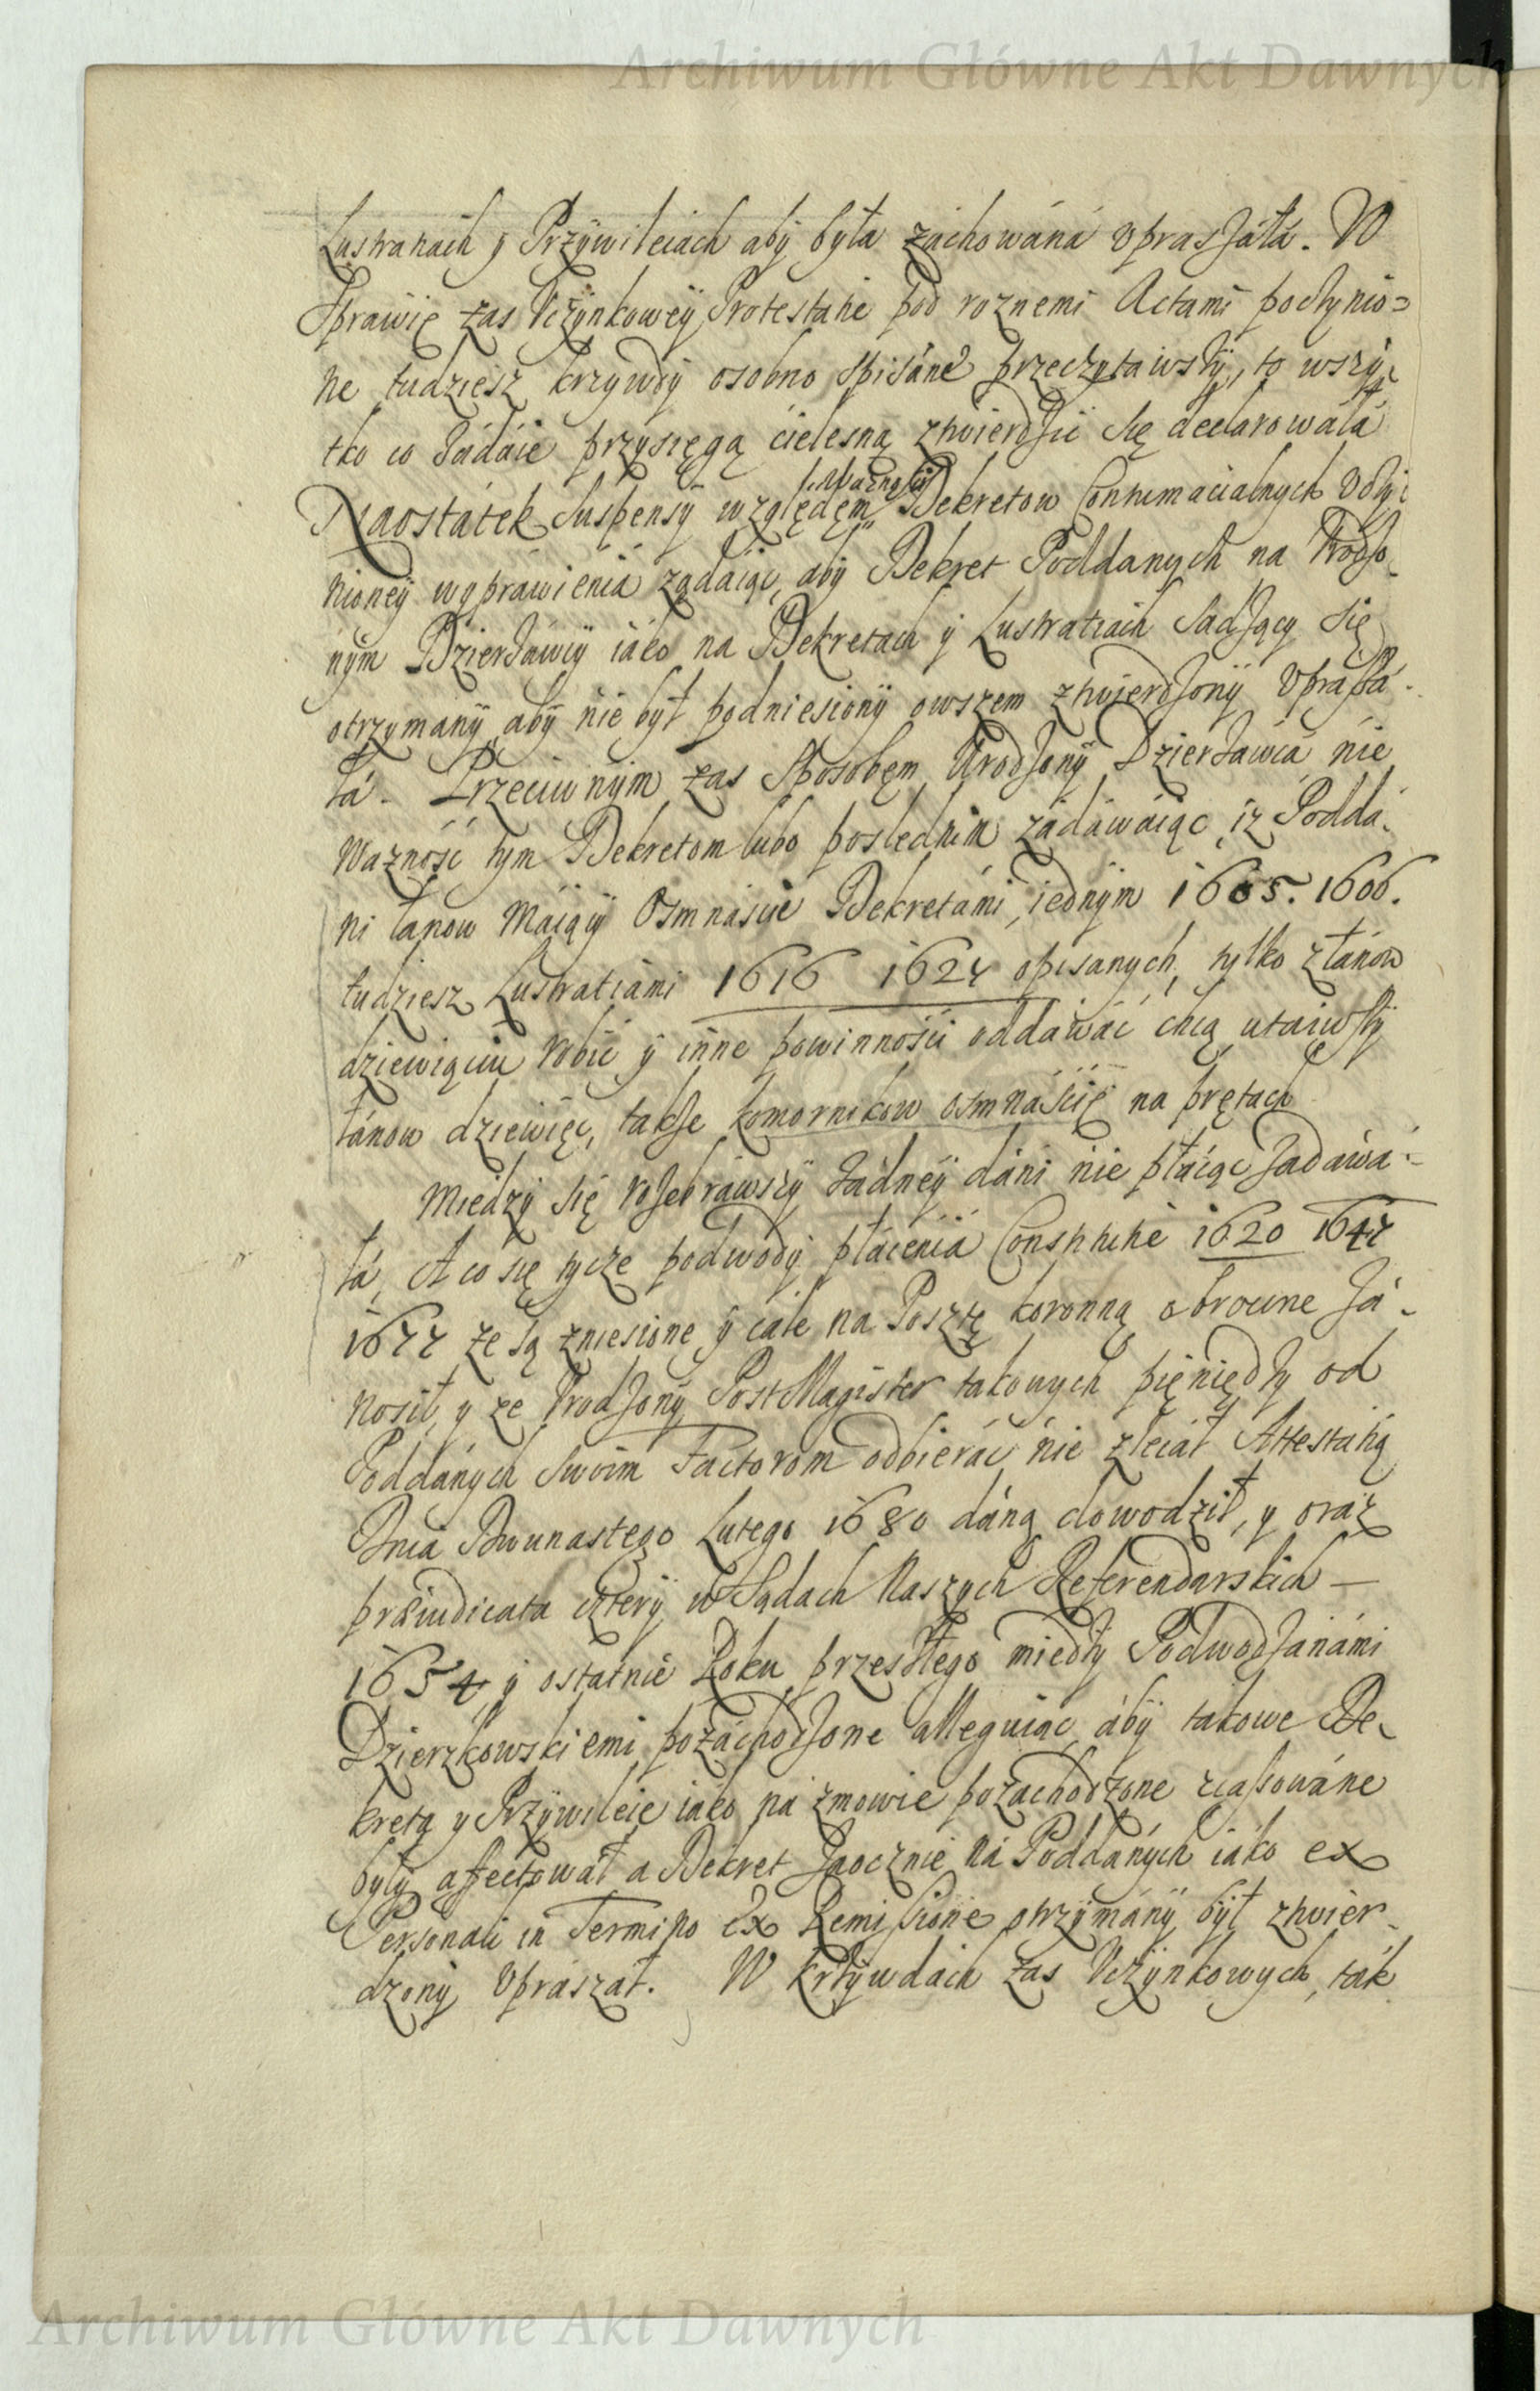 Archiwum Główne Akt Dawnych
Lustratiach y Przywileiach aby była záchowáná vpraszáłá. W
Sprawie zas Vczynkowey, Protestatie pod roznemi Actami poczynio=
ne tudziesz krzywdy osobno spisáné przeczytawszy, to wszy-
tko co Żádáie przysięgą cielesną ztwierdzić się declarowáłá
nieważnosci
Naostátek Suspensy względem Dekretow Contumacialnych vczy-
nioney wyprawienia ządáiąc, aby Dekret Poddanych na Vrodzo-
nym Dzierżáwcy iáko na Dekretach y Lustratiach Sadzący się
otrzymany aby nie był podniesiony owszem ztwierdzony Vprasza-
łá. Przeciwnym zas Sposobem Urodzony Dzierżáwcá nie
ważność tym Dekretom lubo poslednim zádáwáiąc, iz Poddá-
ni łanow máiący Osmnáscie Dekretámi, iednym 1605. 1606.
tudziesz Lustratiámi 1616 1624 opisanych, tylko z łánow
dziewiąciu robić y inne powinnośći oddáwáć chcą utaiwszy
łánow dziewięć, także komornikow osmnáście na prętach
Miedzy się rozebrawszy żádney dáni nie płáiąc zadáwá-
łá, A co się tycze podwody płácenia Constitutie 1620 1647
1677 ze są zniesione y cále na Posztę koronną obrocone zá-
nosił, y ze Vrodzony PostMagister takowych pięniędzy od
Poddánych Swoim Factorom odbieráć nie zleciáł Attestatią
Dnia Dwunastego Lutego 1680 dáną dowodził, y oráz
præiudicata cztery w Sądach Naszych Referendarskich —
1654 y ostatnie Roku przeszłego miedzy Podwodzanámi
Dzierzkowskiemi pozáchodzone alleguiąc, áby takowe De-
kreta y Przywileie iáko ná zmowie pozachodzone zcassowáne
były affectował a Dekret Zaocznie Ná Poddánych iáko ex
Personali in Termino Ex Remissione otrzymány, był ztwier-
dzony vpraszał. W krzywdách zas Vczynkowych, ták
Archiwum Główne Akt Dawnych